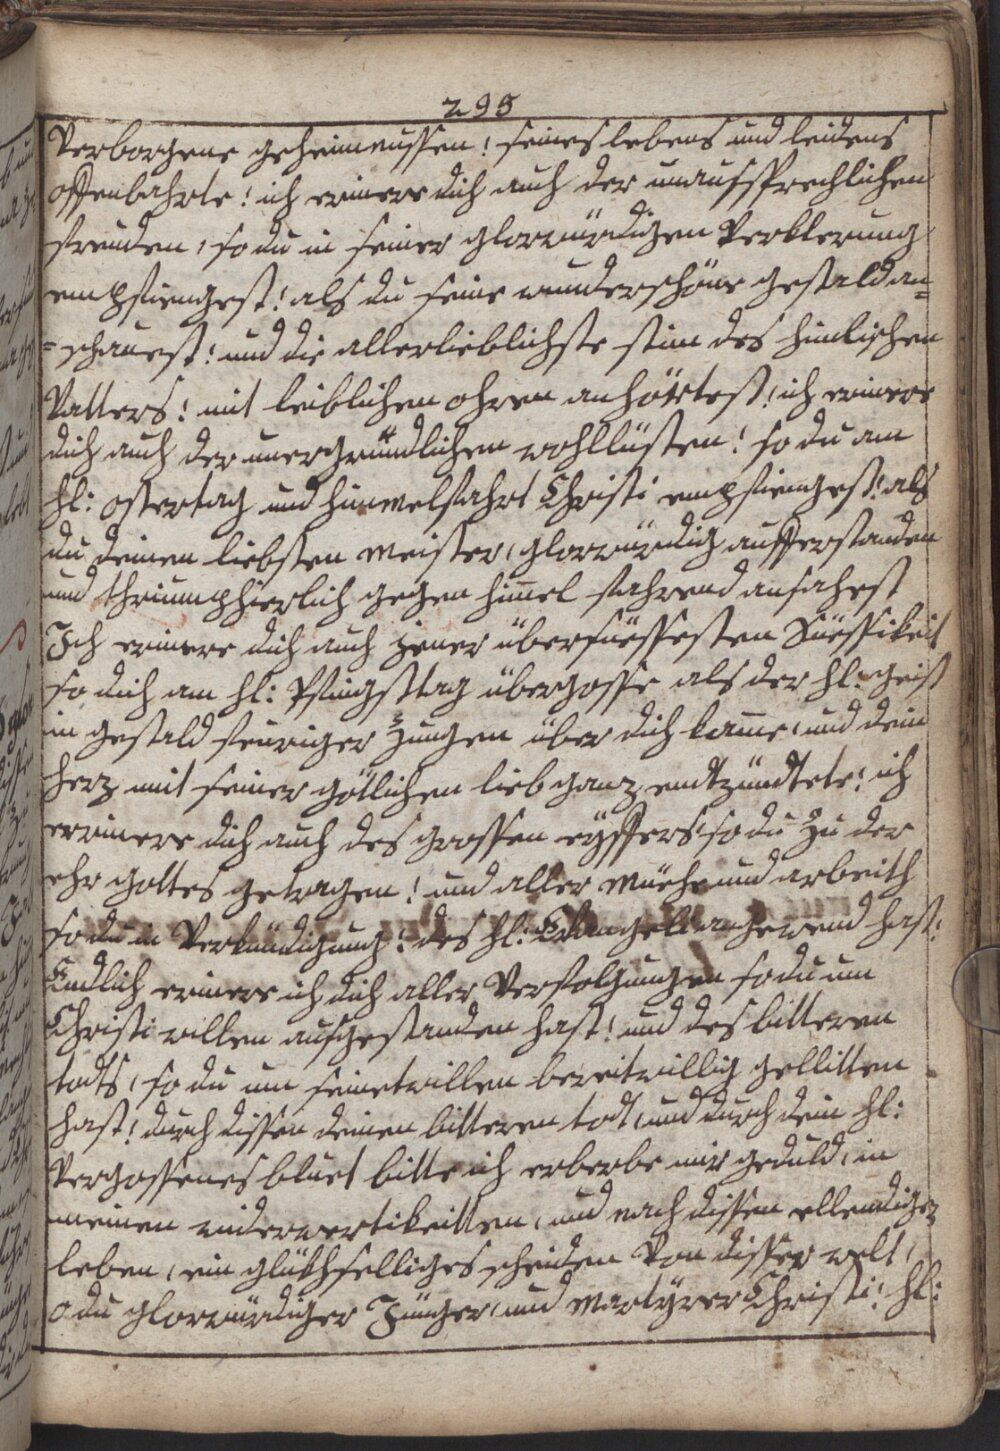 295
Verborgene geheimnussen! seines lebens und leidens
offenbahrte! ich erinere dich auch der unaussprechlichen
freuden, so du in seiner glorwürdigen Verklerung
empfiengest! als du seine wunderschöne gestald an=
=schauest! und die allerlieblichste stim des himlischen
Vatters! mit leiblichen ohren anhörtest! ich erinere
dich auch der unergründlichen wohllüsten! so du am
hl: ostertag und himmelfahrt Christi empfiengest! als
du deinen liebsten meister, glorwürdig aufferstanden
und thriumphierlich gegen himel fahrend ansahest
Ich erinere dich auch jener übersüessesten Süessikeit
so dich am hl: Pfingsttag übergosse als der hl: geist
in gestald feuriger Zungen über dich kame, und dein
herz mit seiner götlichen lieb ganz endtzündtete! ich
errinere dich auch des grossen eyffers so du Zu der
ehr gottes getragen! und aller müehe und arbeith
so du in Verkündigung! des hl: Evangelli angewend hast!
Endlich erinere ich dich aller Verfolgungen so du um
Christi willen aufgestanden hast! und des bitteren
todts, so du um seinetwillen bereitwillig gellitten
hast! durch dissen deinen bitteren todt, und durch dein hl:
Vergossenes bluet bitte ich erberbe mir geduld, in
meinen widerwertikeitten, und nach dissen ellendigen
leben, ein glükhselliges scheiden Von disser welt,
o du glorwürdiger Jünger, und martyrer Christi! hl: